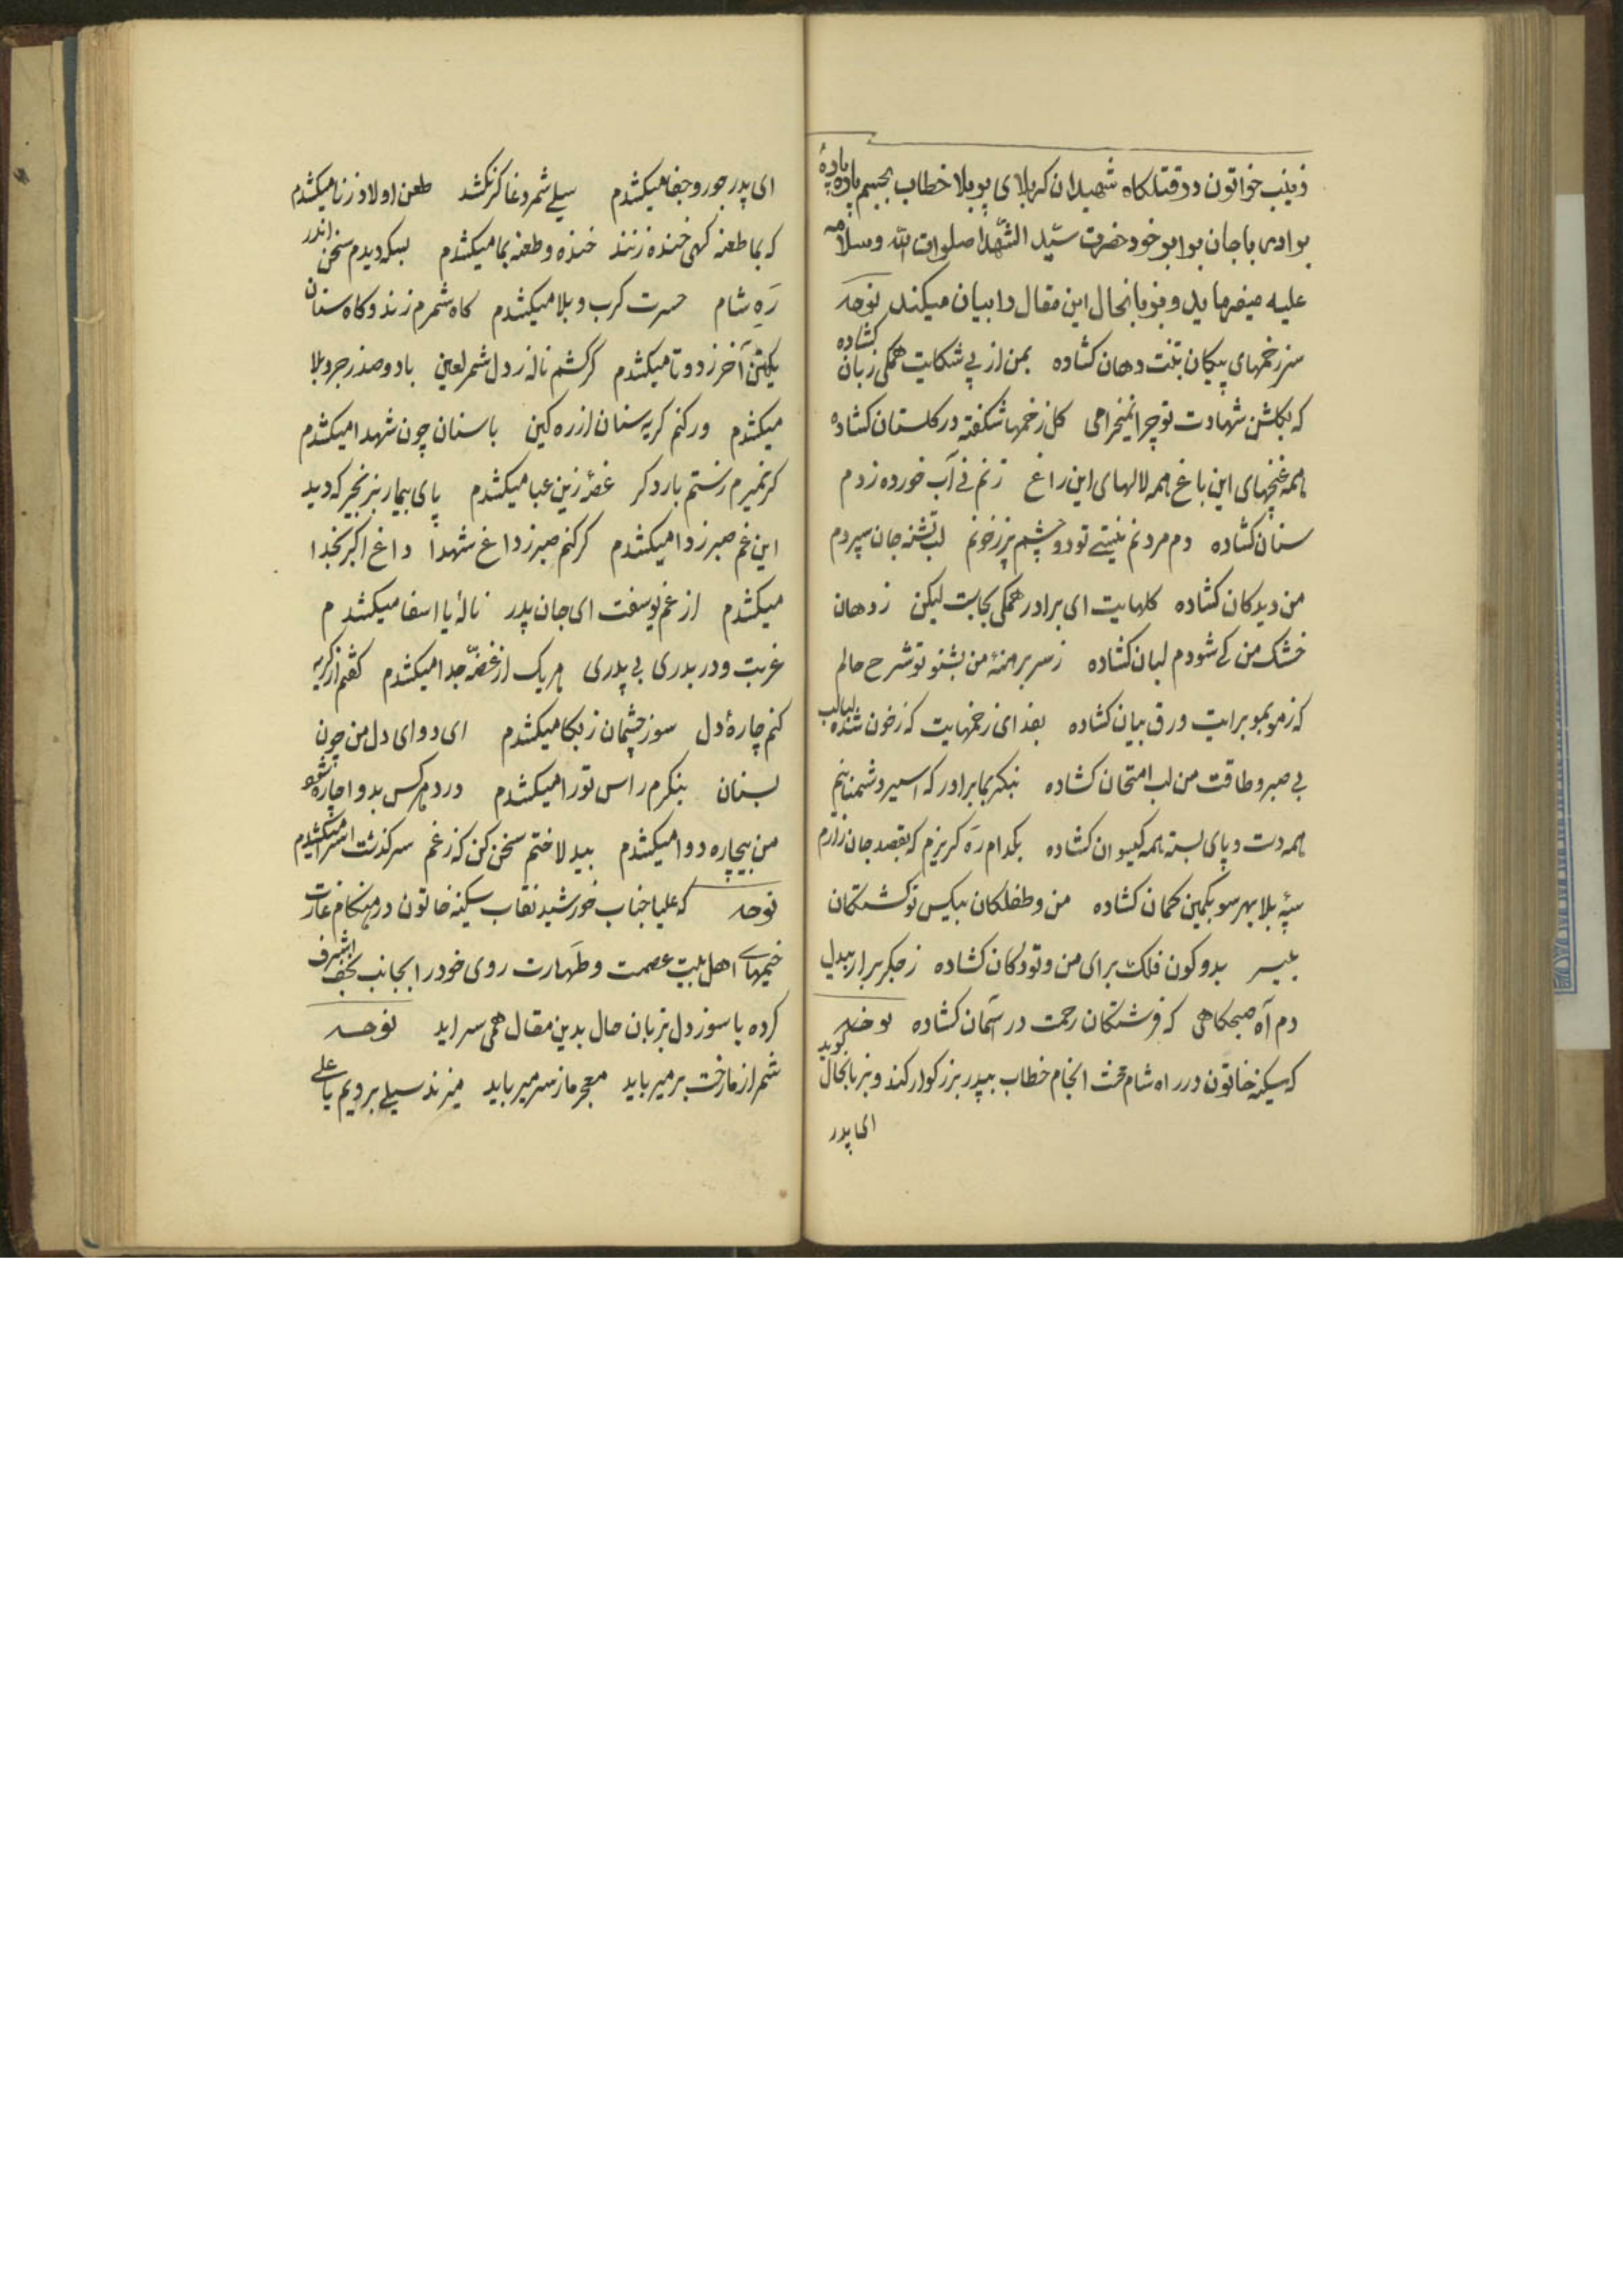 زینب خواتون در قتلکاه شهیدان کربلای پر بلا خطاب بجسم پاره پارهٔ
برادر با جان برابر خود حضرت سیّد الشّهدا صلوات الله و سلامه
علیه میفرماید و بزبانحال این مقال را بیان میکند نوحه
سر زخمهای پیکان بتنت دهان کشاده بمن از پی شکایت همکی زبان کشاده
که بکلشن شهادت تو چرا نمیخرامی کل زخمها شکفته در کلستان کشاده
همه غنچهای این باغ همه لالهای این راغ ز نم نی آب خورده ز دم
سنان کشاده دم مردنم نبستی تو دو چشم پر ز خونم لب تشنه جان سپردم
من دیدکان کشاده کلهایت ای برادر همکی بجاست لیکن ز دهان
خشک من کی شودم لبان کشاده ز سر برهنهٔ من بشنو تو شرح حالم
که ز مو بمو برایت ورق بیان کشاده بفدای زخمهایت که ز خون شده لبالب
بی صبر و طاقت من لب امتحان کشاده بنکر بما برادر که اسیر دشمنانیم
همه دست و پای بسته همه کیسوان کشاده بکدام ره کریزم که بقصد جان زارم
سپه بلا بهر سو بکمین کمان کشاده من و طفلکان بیکس تو کشتکان
بیسر بدو کون فلک برای من و تو دکان کشاده ز جکر برار بیدل
دم آه صبحکاهی که فرشتکان رحمت در آسمان کشاده نوحه
که سکینه خاتون در راه شام محنت انجام خطاب بپدر بزرکوار کند و بزبانحال کوید
ای پدر
ای پدر جور و جفا میکشدم سیلی شمر دغا کر نکشد طعن اولاد زنا میکشدم
که بما طعنه کهی خنده زنند خنده و طعنه بما میکشدم بسکه دیدم سخن اندر
رَهِ شام حسرت کرب و بلا میکشدم کاه شمرم زند و کاه سنان
یکتن آخر ز دو تا میکشدم کر کشم ناله ز دل شمر لعین با دو صد زجر و بلا
میکشدم ور کنم کریه سنان از ره کین با سنان چون شهدا میکشدم
کر نمیرم ز ستم بار دکر غصّه زین عبا میکشدم پای بیمار بزنجیر که دید
این غم صبر زدا میکشدم کر کنم صبر ز داغ شهدا داغ اکبر بخدا
میکشدم از غم یوسفت ای جان پدر نالهٔ یا اسفا میکشدم
غربت و در بدری بی پدری هریک از غصّه جدا میکشدم کفتم از کریه
کنم چارهٔ دل سوز چشمان ز بکا میکشدم ای دوای دل من چون
بسنان بنکرم راس تو را میکشدم درد هر کس بدوا چاره شود
من بیچاره دوا میکشدم بیدلا ختم سخن کن که ز غم سرکذشت اسرا میکشدم
نوحه که علیا جناب خورشید نقاب سکینه خاتون در هنکام غارت
خیمهای اهل بیت عصمت و طهارت روی خود را بجانب نجف اشرف
کرده با سوز دل بزبان حال بدین مقال همی سراید نوحه
شمر از ما رخت بر میرباید معجر ما ز سر میرباید میزند سیلی برویم یا علی